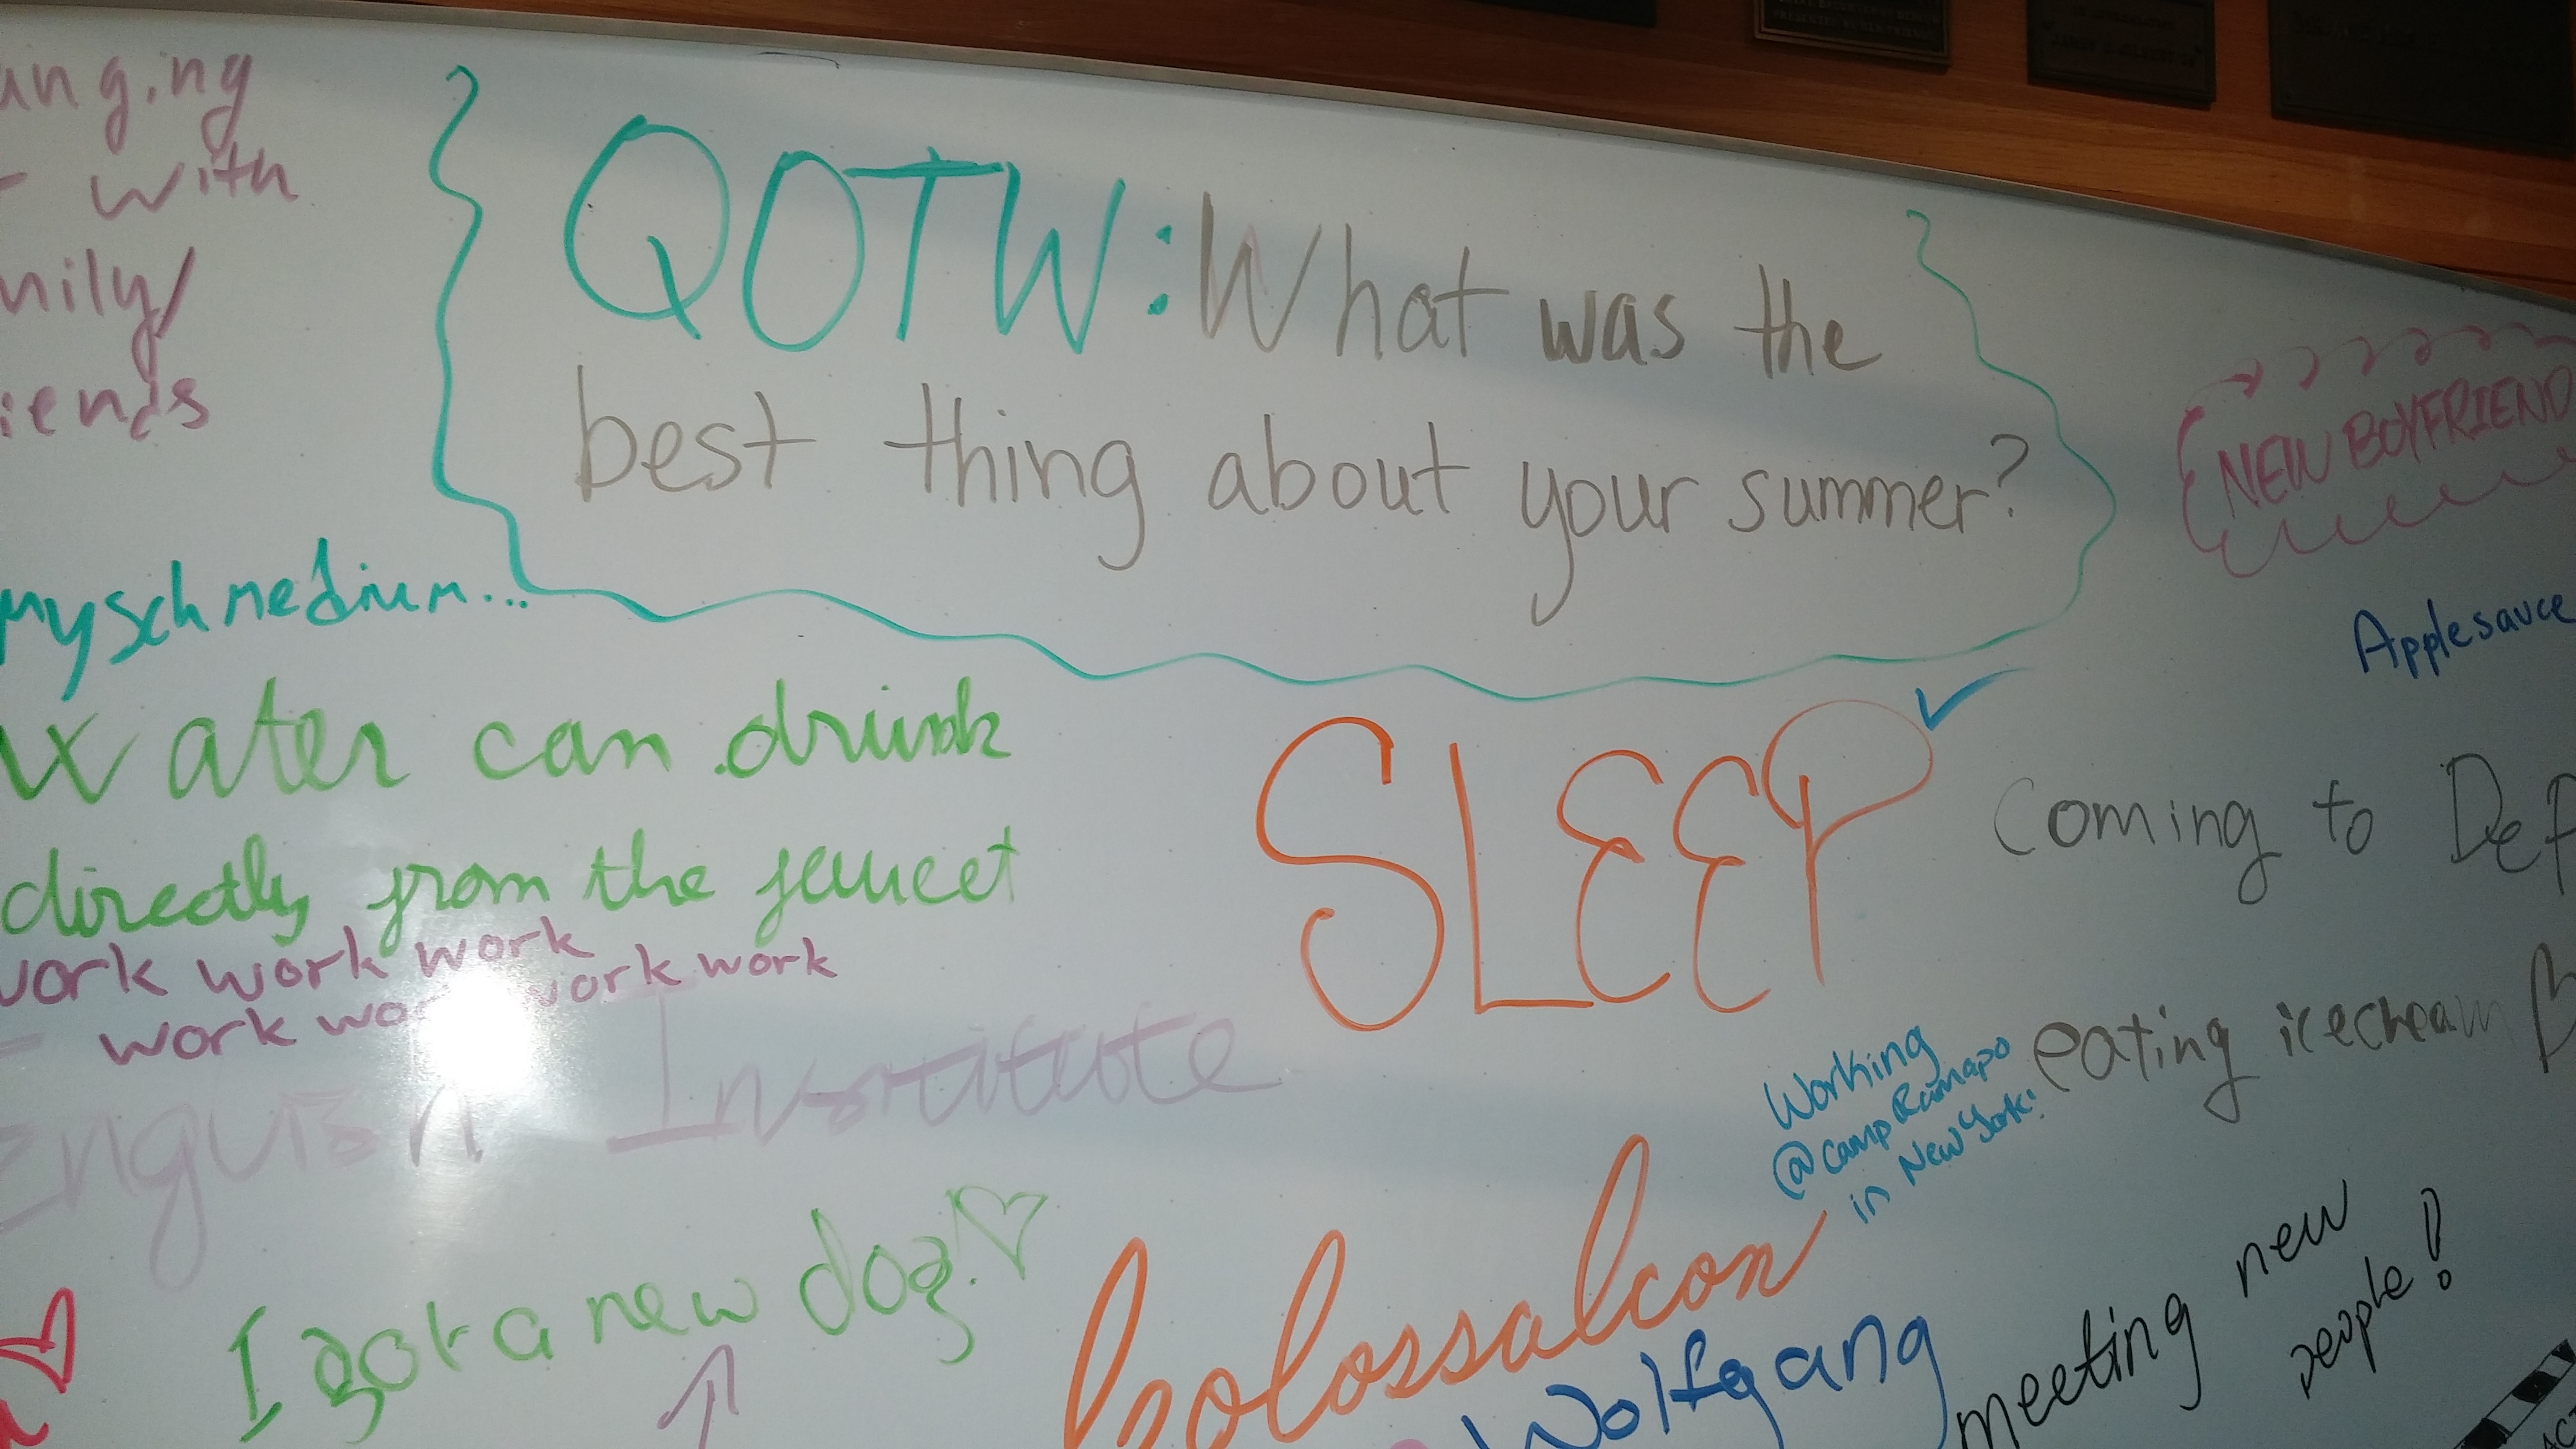 QOTW: What was the
best thing about your summer?
with
NEW BOYFRIEND
Applesauce
my schmedium...
Water can drink
directly from the feuceet
work work work
work work work work
English Institute
SLEEP
Coming to Def
eating icecream
Working
@ Camp Ramapo
in New York!
I got a new dog!
Kolossalcon
Wolfgang
meeting new
people!